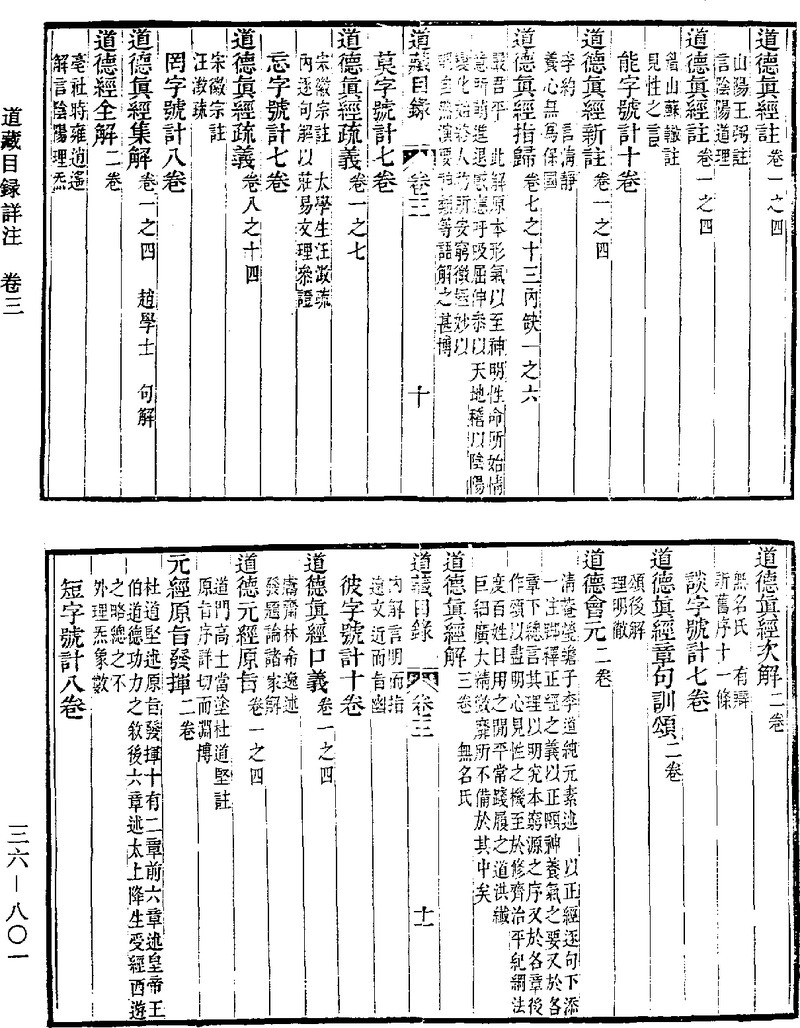 道德眞經註卷一之四
山陽王弼註
言陰陽道理
道德眞經註卷一之四
眉山蘇轍註
見性之言
能字號計十卷
道德眞經新註卷一之四
李約　言清靜
養心無爲保國
道德眞經指歸卷七之十三內缺一之六
嚴君平　此解原本形氣以至神明性命所始情
意所萌進退感應呼吸屈伸參以天地稽以陰陽
變化始終人物所安窮微極妙以
明自然演要神類等語解之甚博
道藏目錄　卷三　十
莫字號計七卷
道德眞經疏義卷一之七
宋徽宗註　太學生汪澂疏
內逐句解以莊易文理參證
忘字號計七卷
道德眞經疏義卷八之十四
宋徽宗註
汪澂疏
罔字號計八卷
道德眞經集解卷一之四　趙學士　句解
道德經全解二卷
亳社時雍逍遙
解言陰陽理炁
道藏目録詳注　卷三
道德眞經次解二卷
無名氏　有辯
新舊序十一條
談字號計七卷
道德眞經章句訓頌二卷
頌後解
理明徹
道德會元二卷
清菴瑩蟾子李道純元素述　以正經逐句下添
一注脚釋正經之義以正頤神養氣之要又於各
章下總言其理以明究本窮源之序又於各章後
作頌以盡明心見性之機至於修齊治平紀綱法
度百姓日用之間平常踐履之道洪纖
巨細廣大精微靡所不備於其中矣
道德眞經解三卷　無名氏
內解言明而指
遠文近而旨幽
道藏目錄　卷三　十一
彼字號計十卷
道德眞經口義卷一之四
鬳齋林希逸述
發題論諸家解
道德元經原旨卷一之四
道門高士當塗杜道堅註
原旨序詳切而淵博
元經原旨發揮二卷
杜道堅述原旨發揮十有二章前六章述皇帝王
伯道德功力之敘後六章述太上降生受經西遊
之略總之不
外理炁象數
短字號計八卷
三六－八〇一